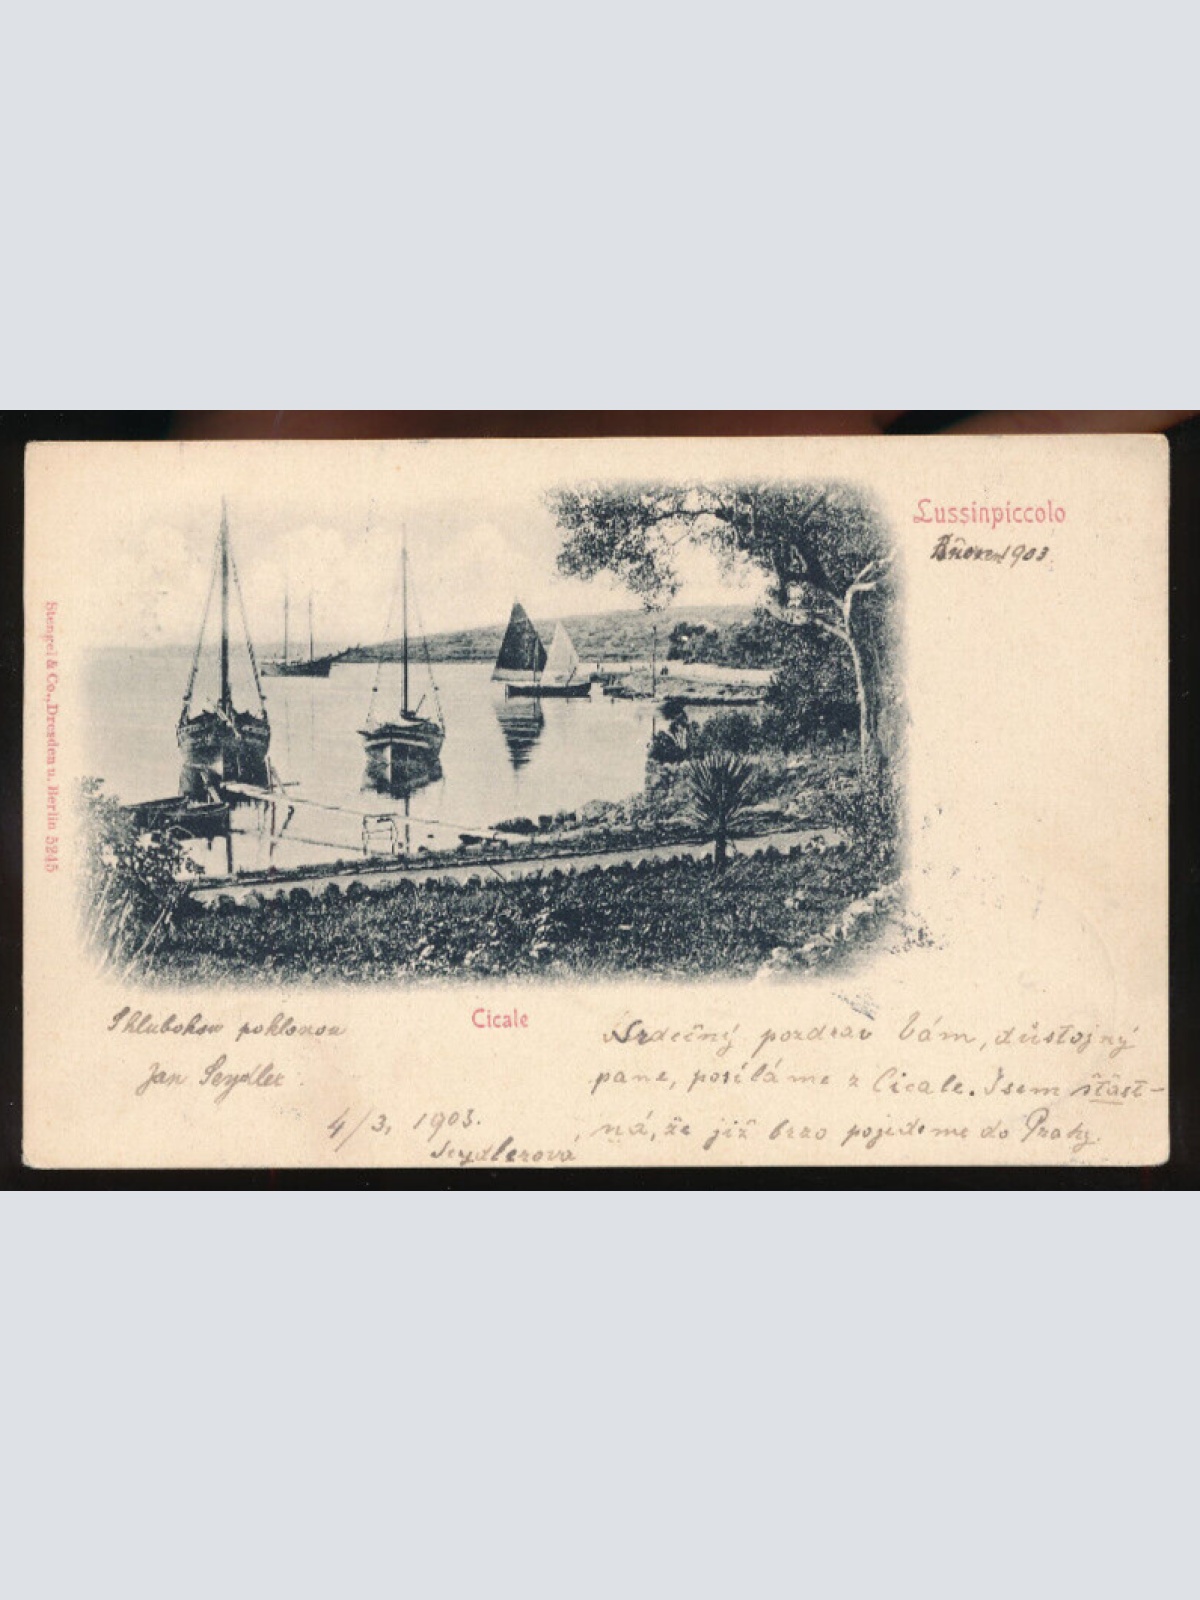 Lussinpiccolo
1903.
Stengel & Co., Dresden u. Berlin 5245
Cicale
S hlubokou poklonou
Jan Seydler.
4/3, 1903.
Seydlerova
Srdečný pozdrav Vám, důstojný
pane, posíláme z Cicale. Jsem štast-
ná, že již brzo pojedeme do Prahy.